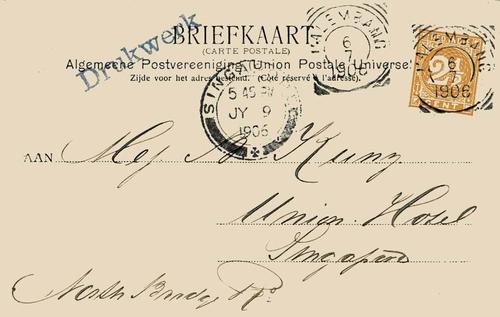 Drukwerk
BRIEFKAART
(CARTE POSTALE)
Algemeene Postvereeniging (Union Postale Universelle)
Zijde voor het adres bestemd. (Côté réservé à l'adresse).
PALEMBANG
6
7
1906
PALEMBANG
6
7
1906
2½
CENT
SINGAPORE
5 45 PM
JY 9
1906
AAN
Kunz
Union Hotel
Singapore
North Bridge Rd